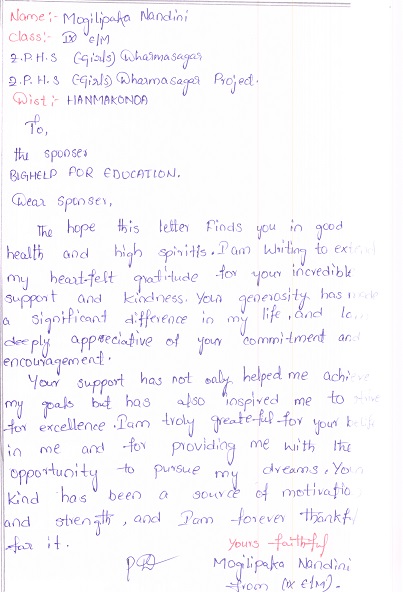 Name:- Mogilipaka Nandini
Class:- IX E/M
Z.P.H.S (Girls) Dharmasagar
Z.P.H.S (Girls) Dharmasagar Project.
Dist:- HANMAKONDA
To,
the sponser
BIGHELP FOR EDUCATION.
Dear Sponser,
The hope this letter finds you in good
health and high spiritis. I am writing to
my heart-felt gratitude for your incredible
support and kindness. Your generosity has
a significant difference in my life, and
deeply appreciative of your commitment and
encouragement.
Your support has not only helped me achieve
my goals but has also inspired me to
for excellence. I am truly greateful for your
in me and for providing me with the
opportunity to pursue my dreams, Your
kind has been a source of motivatio
and strength, and I am forever thankf
for it.
Yours faithful
Mogilipaka Nandini
from (IX E/M).